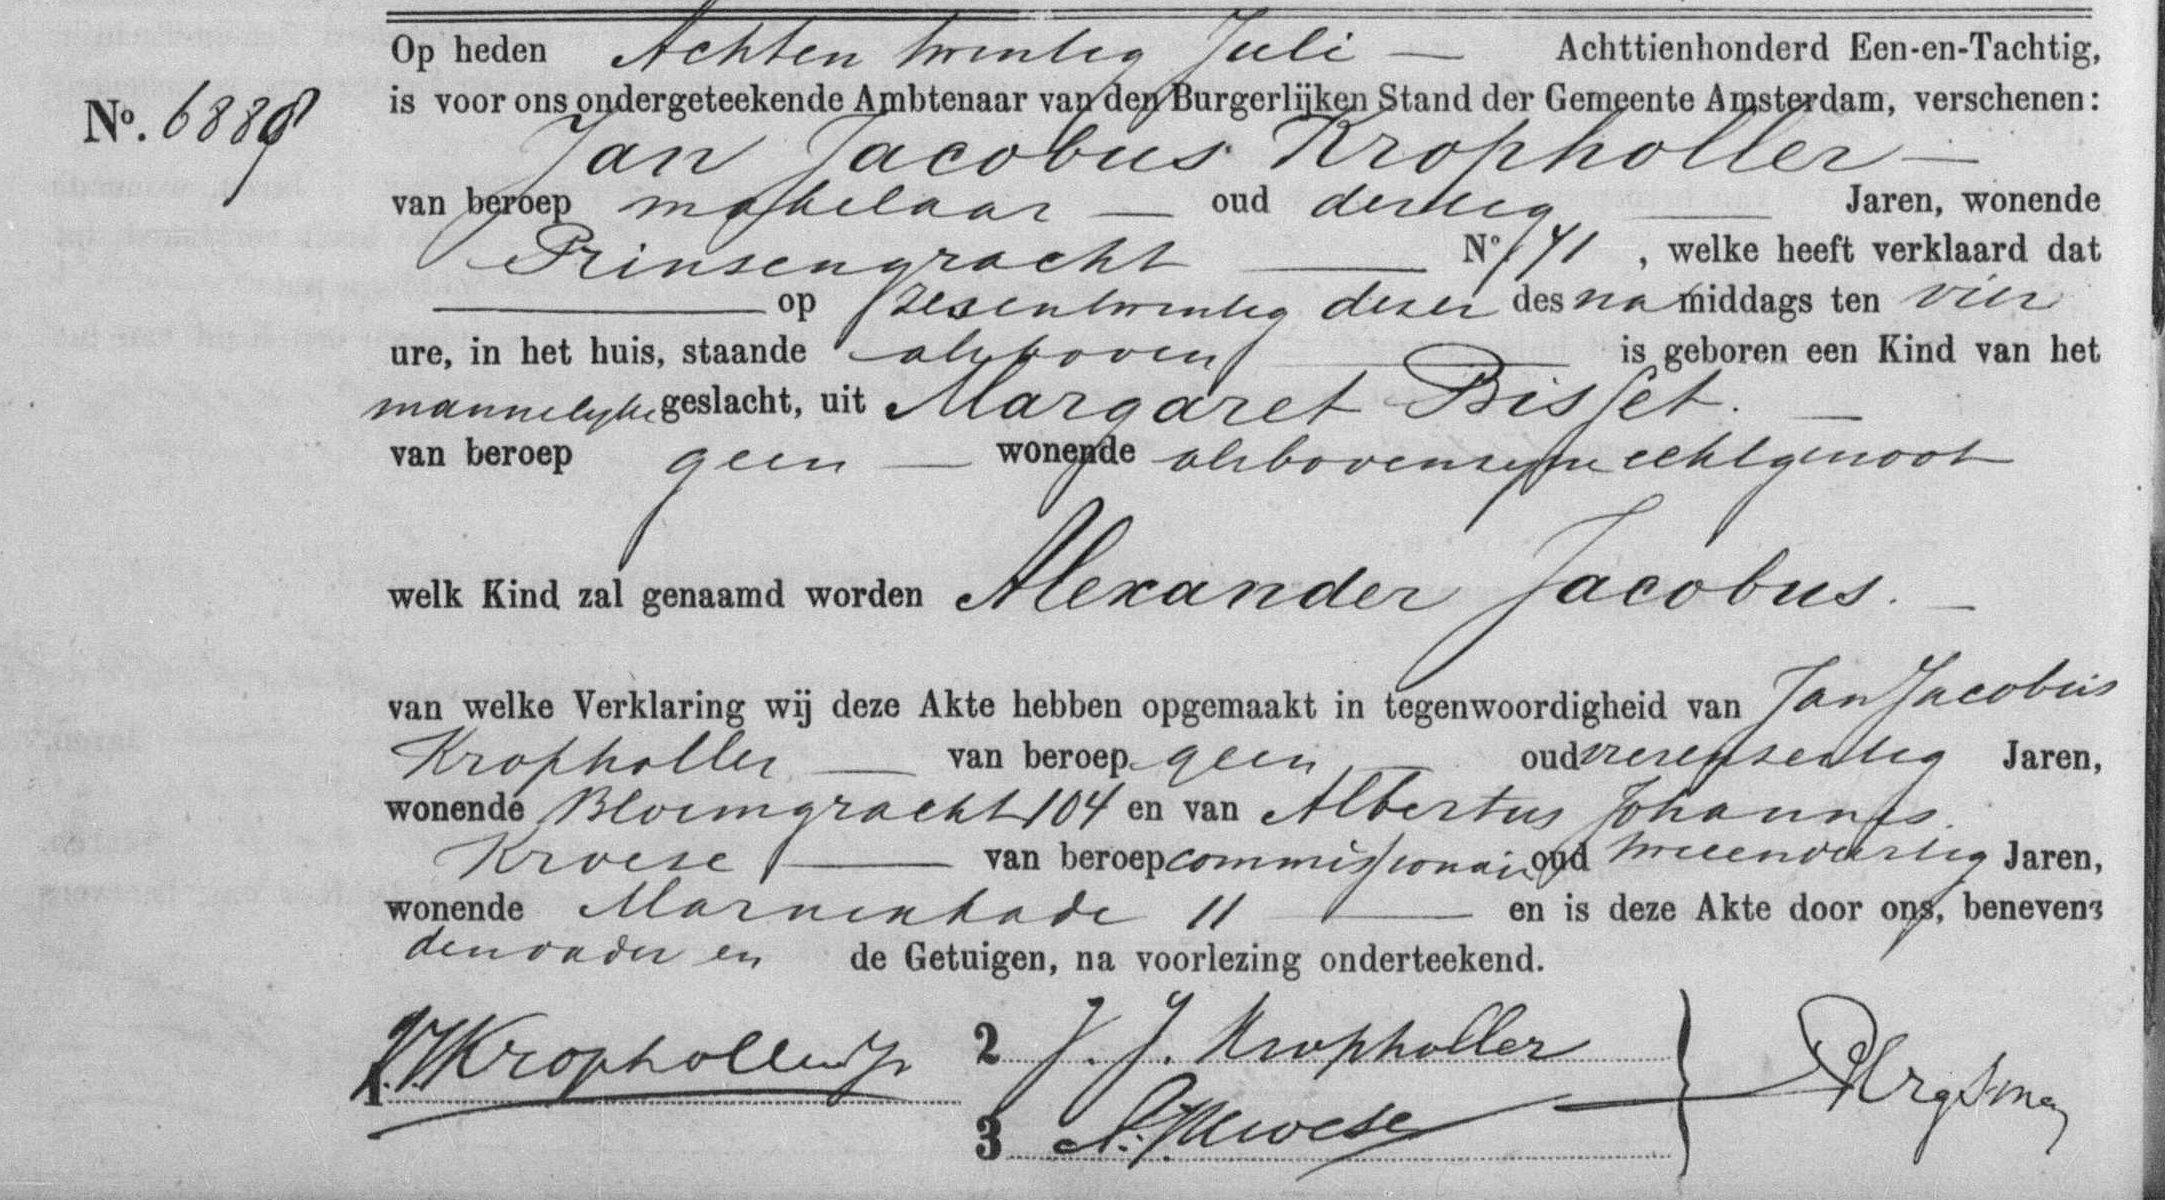 Op heden Achten twintig Juli — Achttienhonderd Een-en-Tachtig,
No. 6888
is voor ons ondergeteekende Ambtenaar van den Burgerlijken Stand der Gemeente Amsterdam, verschenen:
Jan Jacobus Kropholler —
van beroep makelaar — oud dertig — Jaren, wonende
Prinsengracht — No. 741, welke heeft verklaard dat
— op zesentwintig dezer des namiddags ten vier
ure, in het huis, staande alsboven — is geboren een Kind van het
mannelyke geslacht, uit Margaret Bisset. —
van beroep geen — wonende alsboven zyne echtgenoot
welk Kind zal genaamd worden Alexander Jacobus. —
van welke Verklaring wij deze Akte hebben opgemaakt in tegenwoordigheid van Jan Jacobus
Kropholler — van beroep geen — oud Jaren,
wonende Bloemgracht 104 en van Albertus Johannes
Kroese — van beroep commissionair oud tweeendertig Jaren,
wonende Marnixkade 11 — en is deze Akte door ons, benevens
den vader en de Getuigen, na voorlezing onderteekend.
1 J.J. Kropholler Jr
2 J. J. Kropholler
3 A. J. Kroese